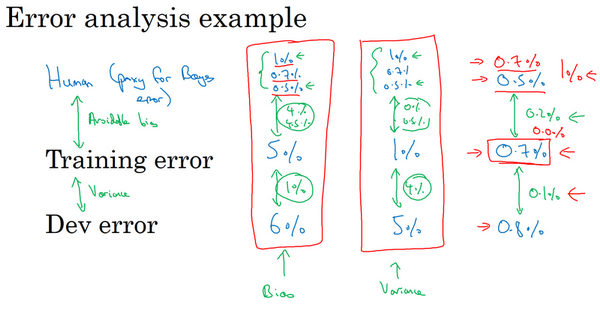 Error analysis example
Human (proxy for Bayes error)
Avoidable bias
Training error
Variance
Dev error
1%
0.7%
0.5%
4%
4.5%
5%
1%
6%
Bias
1%
0.7%
0.5%
0%
0.5%
1%
4%
5%
Variance
0.7%
0.5%
1%
0.2%
0.0%
0.7%
0.1%
0.8%